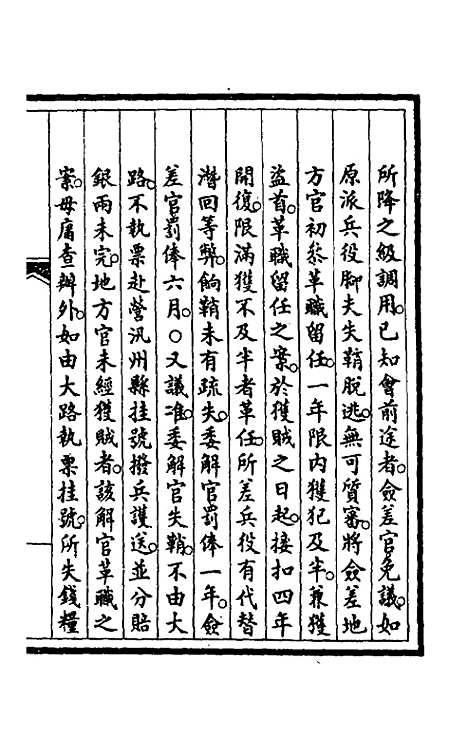 所降之級調用。已知會前途者。僉差官免議。如
原派兵役腳夫失鞘脫逃。無可質審。將僉差地
方官初叅革職留任。一年限內獲犯及半。兼獲
盜首。革職留任之案。於獲賊之日起。接扣四年
開復。限滿獲不及半者革任。所差兵役有代替
潛回等弊。餉鞘未有疏失。委解官罰俸一年。僉
差官罰俸六月。○又議准。委解官失鞘。不由大
路。不執票赴營汛州縣挂號撥兵護送。並分賠
銀兩未完。地方官未經獲賊者。該解官革職之
案。毋庸查辦外。如由大路執票挂號。所失錢糧